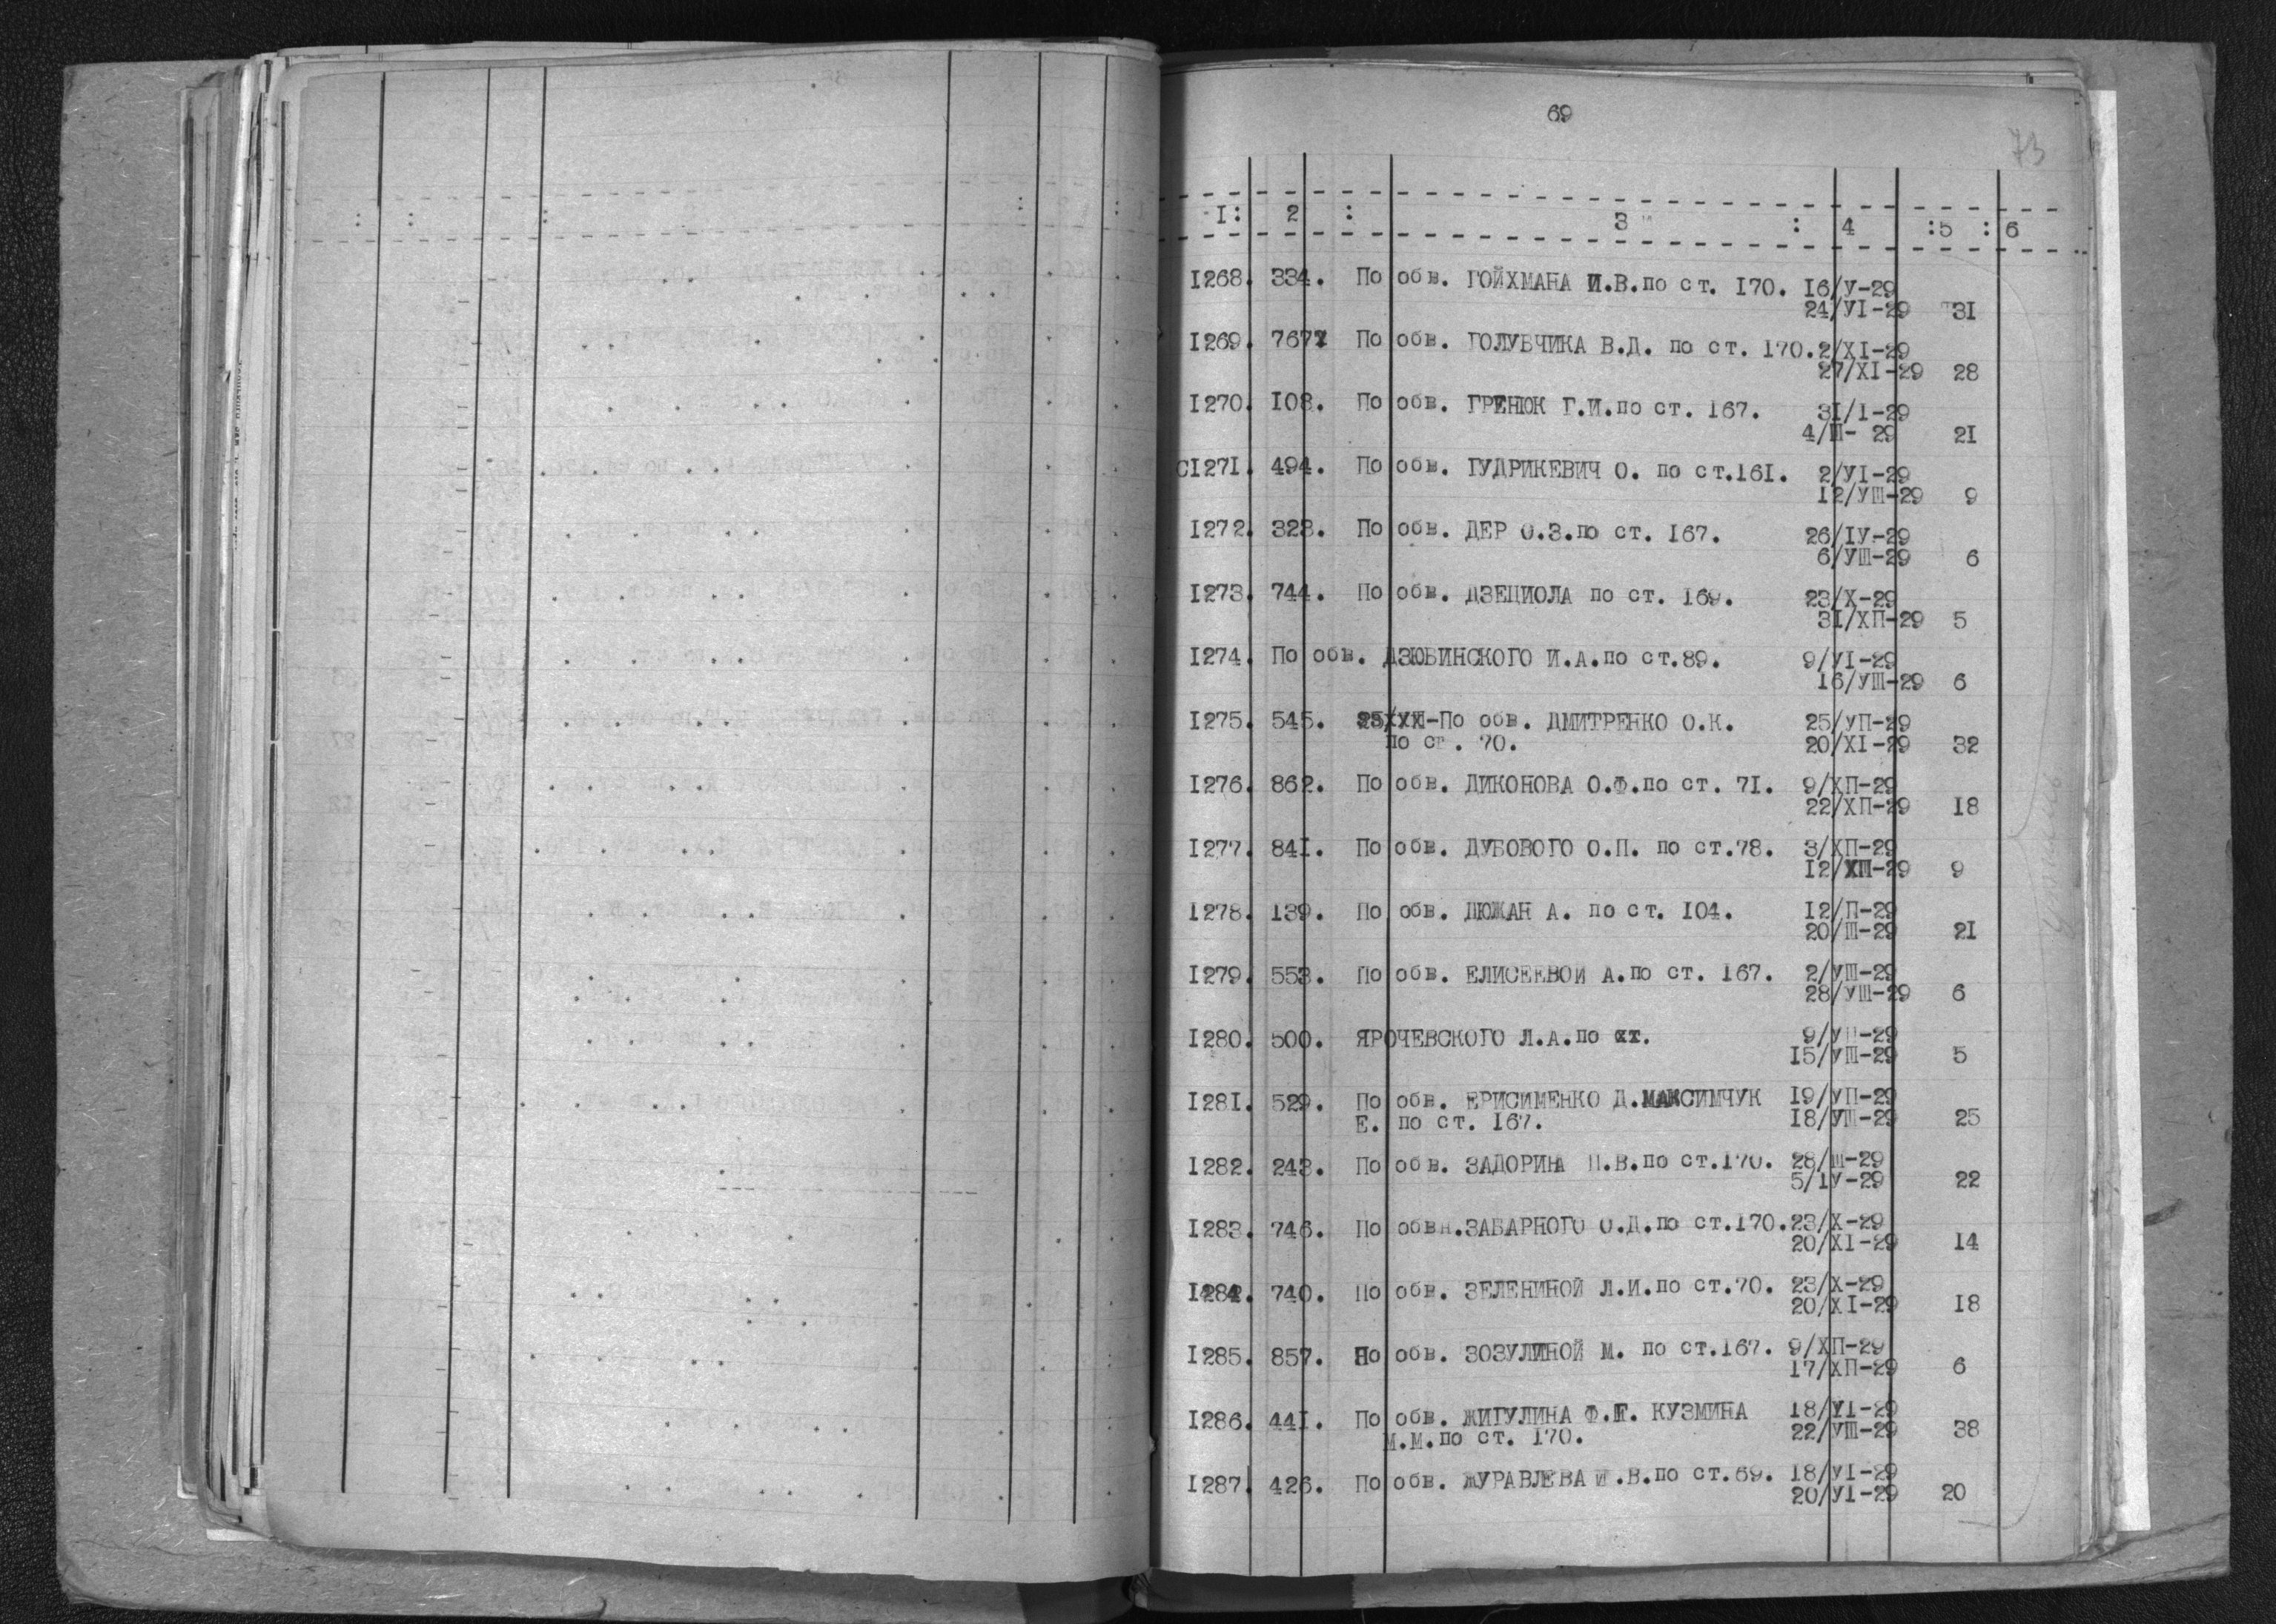 69
73
I: 2 : 3 : 4 :5 : 6
I268. 334. По обв. ГОЙХМАНА И.В.по ст. I70. I6/У-29
24/УI-29 3I
I269. 767 По обв. ГОЛУБЧИКА В.Д. по ст. I70.2/XI-29
27/XI-29 28
I270. I08. По обв. ГРЕНЮК Г.И.по ст. I67. 3I/I-29
4/Ш- 29 2I
СI27I. 494. По обв. ГУДРИКЕВИЧ О. по ст.I6I. 2/УI-29
I2/УШ-29 9
I272. 328. По обв. ДЕР О.З.по ст. I67. 26/IУ-29
6/УШ-29 6
I273. 744. По обв. ДЗЕЦИОЛА по ст. I69. 23/X-29
3I/XП-29 5
I274. По обв. ДЗЮБИНСКОГО И.А.по ст.89. 9/УI-29
I6/УШ-29 6
I275. 545. По обв. ДМИТРЕНКО О.К. 25/УП-29
по ст. 70. 20/XI-29 32
I276. 862. По обв. ДИКОНОВА О.Ф.по ст. 7I. 9/XП-29
22/XП-29 I8
I277. 84I. По обв. ДУБОВОГО О.П. по ст.78. 3/XП-29
I2/XП-29 9
I278. I39. По обв. ДЮЖАН А. по ст. I04. I2/П-29
20/Ш-29 2I
I279. 553. По обв. ЕЛИСЕЕВОЙ А.по ст. I67. 2/УШ-29
28/УШ-29 6
I280. 500. ЯРОЧЕВСКОГО Л.А.по ст. 9/УП-29
I5/УШ-29 5
I28I. 529. По обв. ЕРИСИМЕНКО Д.МАКСИМЧУК I9/УП-29
Е. по ст. I67. I8/УШ-29 25
I282. 243. По обв. ЗАДОРИНА П.В.по ст.I70. 28/Ш-29
5/IУ-29 22
I283. 746. По обвн.ЗАБАРНОГО О.Д.по ст.I70.23/X-29
20/XI-29 I4
I284. 740. По обв. ЗЕЛЕНИНОЙ Л.И.по ст.70. 23/X-29
20/XI-29 I8
I285. 857. По обв. ЗОЗУЛИНОЙ М. по ст.I67. 9/XП-29
I7/XП-29 6
I286. 44I. По обв. ЖИГУЛИНА Ф.Г. КУЗМИНА I8/УI-29
М.М.по ст. I70. 22/УШ-29 38
I287. 426. По обв. ЖУРАВЛЕВА И.В.по ст.69. I8/УI-29
20/УI-29 20